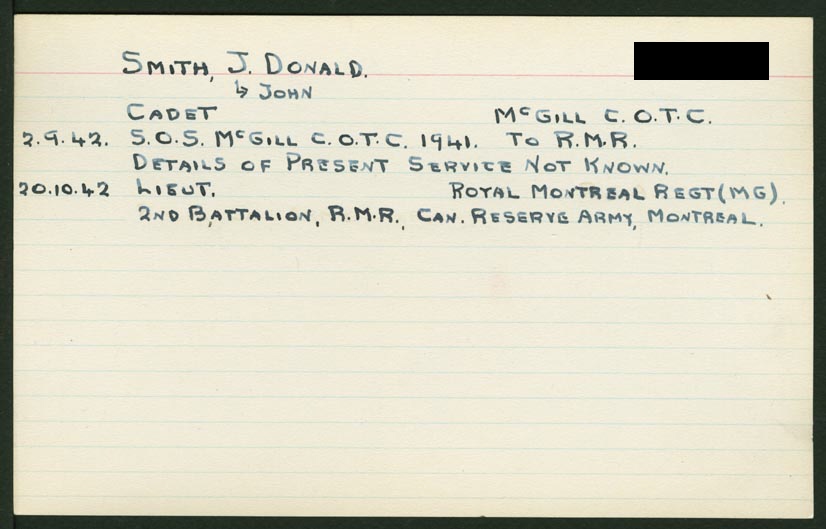 SMITH, J. DONALD.
↳ JOHN
CADET McGILL C.O.T.C.
2.9.42. S.O.S. McGILL C.O.T.C. 1941. TO R.M.R.
DETAILS OF PRESENT SERVICE NOT KNOWN.
20.10.42 LIEUT. ROYAL MONTREAL REGT(MG).
2ND BATTALION, R.M.R., CAN. RESERVE ARMY, MONTREAL.